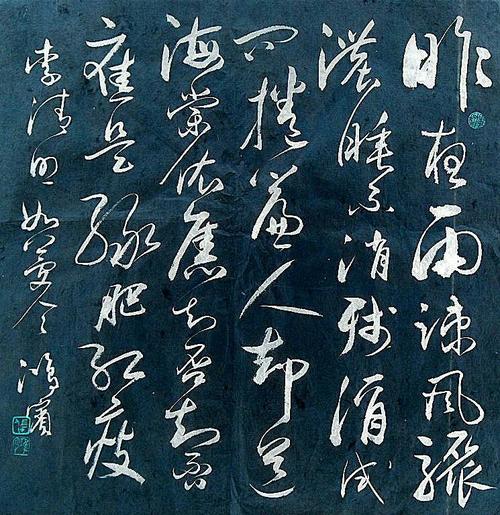 昨夜雨疎風驟
濃睡不消殘酒試
問捲簾人却道
海棠依舊知否知否
應是綠肥紅瘦
李清照如夢令 鴻賓